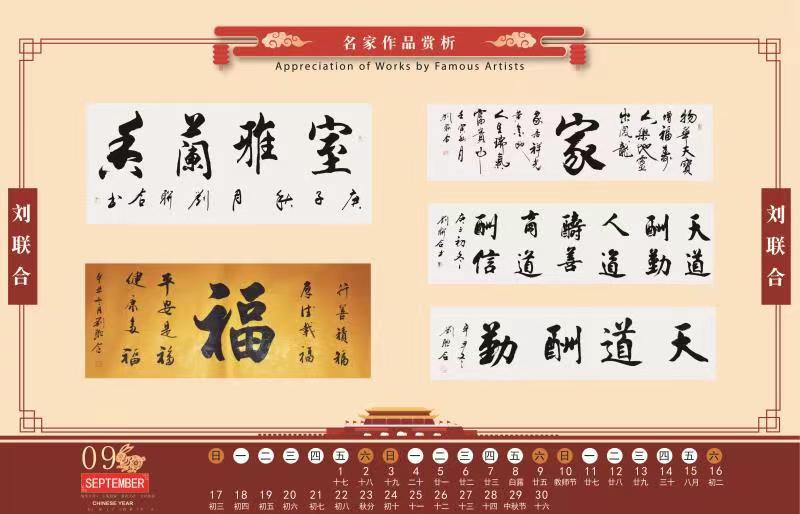 名家作品赏析
Appreciation of Works by Famous Artists
刘联合
室雅蘭香
庚子秋月劉聯合书
行善積福
厚德載福
福
平安是福
健康多福
辛丑十月劉聯合
物華天寶
增福壽
人傑地靈
出鳳龍
家
家居祥光
黄金地
人生瑞氣
富貴山
壬寅秋月
劉聯合
天道酬勤
人道酬善
商道酬信
庚子初冬
劉聯合书
天道酬勤
辛丑冬
劉聯合
刘联合
09
SEPTEMBER
CHINESE YEAR
日 一 二 三 四 五 六 日 一 二 三 四 五 六 日 一 二 三 四 五 六
1 2 3 4 5 6 7 8 9 10 11 12 13 14 15 16
十七 十八 十九 二十 廿一 廿二 廿三 白露 廿五 教师节 廿七 廿八 廿九 三十 八月 初二
17 18 19 20 21 22 23 24 25 26 27 28 29 30
初三 初四 初五 初六 初七 初八 秋分 初十 十一 十二 十三 十四 中秋节 十六